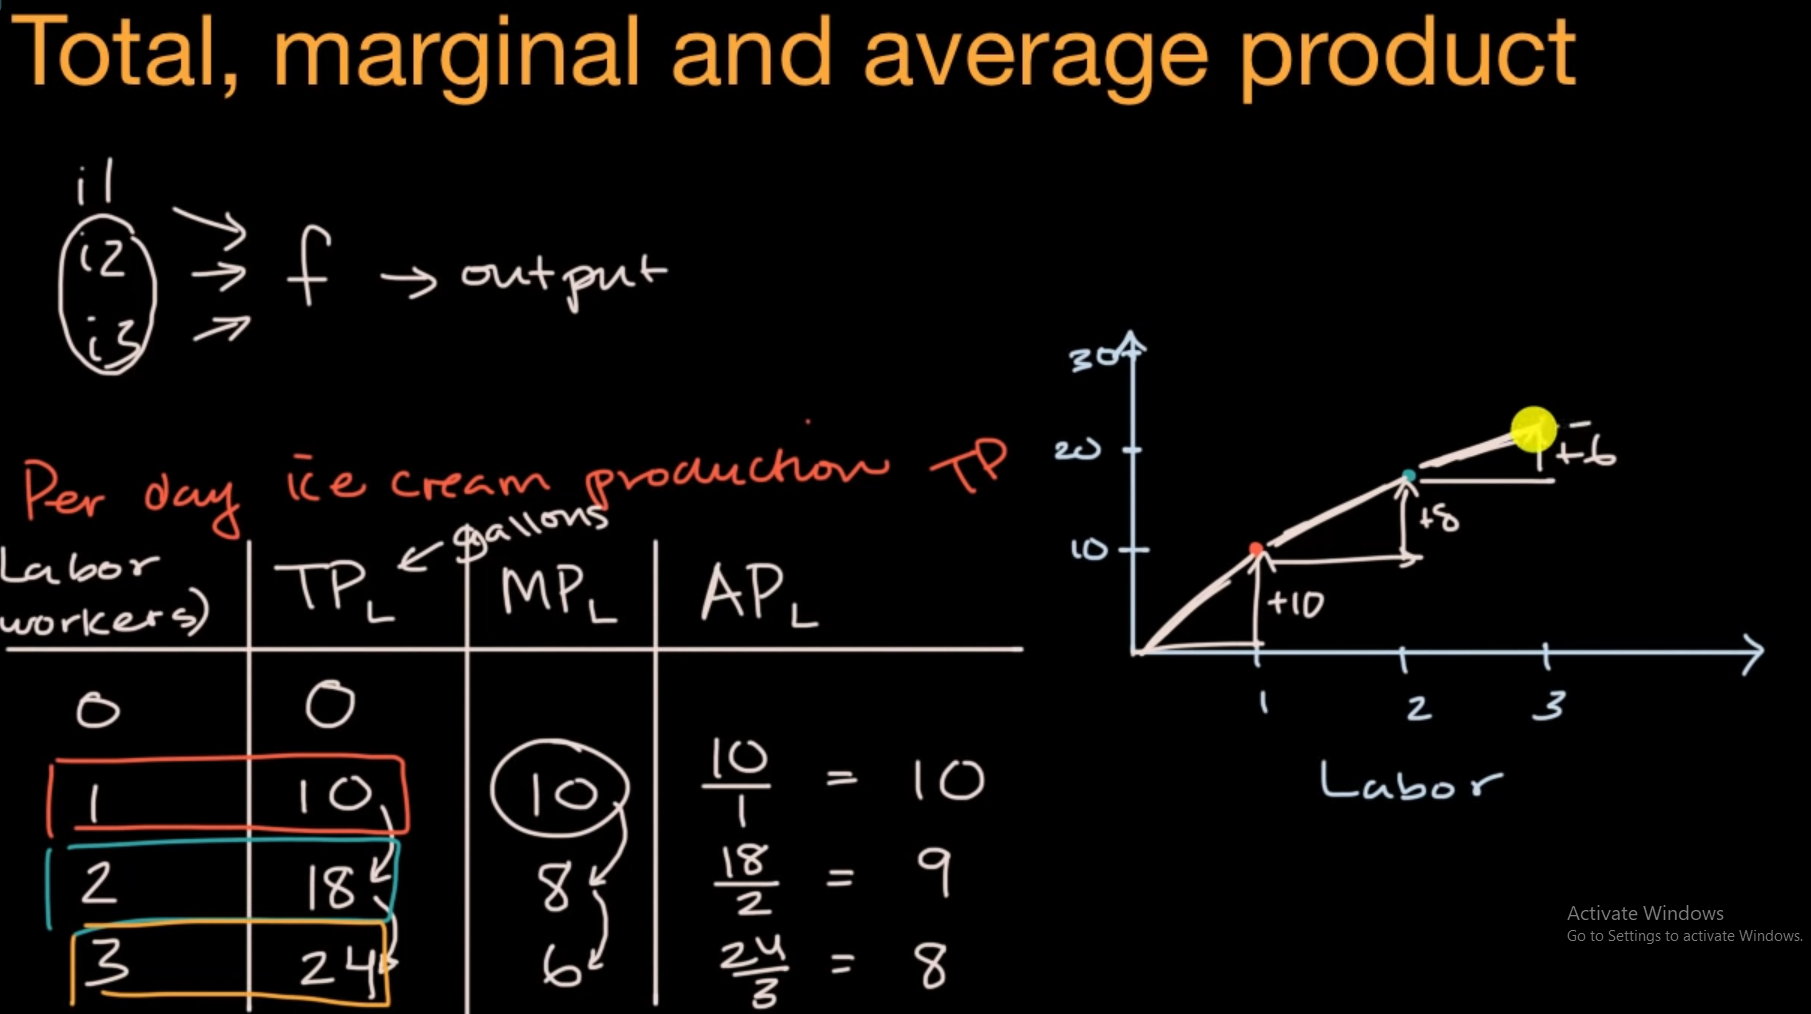 Total, marginal and average product
i1
i2 → f → output
i3
Per day ice cream production TP
gallons
Labor TPL MPL APL
workers)
0 0
1 10 10 10/1 = 10
2 18 8 18/2 = 9
3 24 6 24/3 = 8
30
20
10
+6
+8
+10
1 2 3
Labor
Activate Windows
Go to Settings to activate Windows.